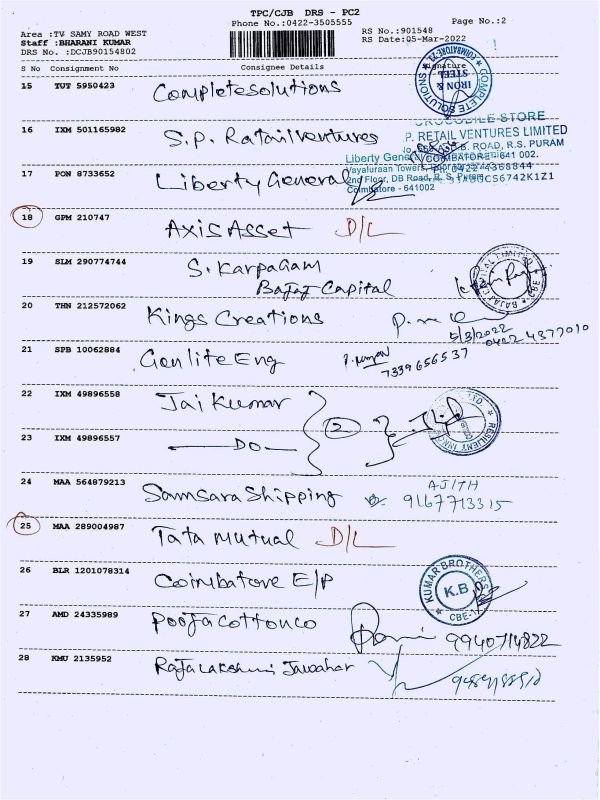 TPC/CJB DRS - PC2
Phone No.:0422-3505555
Page No.:2
Area :TV SAMY ROAD WEST
RS No.:901548
Staff :BHARANI KUMAR
RS Date:05-Mar-2022
DRS No. :DCJB90154802
S No Consignment No Consignee Details Signature
15 TUT 5950423 Completesolutions
COMPLETE SOLUTIONS COIMBATORE
IRON & STEEL
16 IXM 501165982 S.P. Retailventures
CROCODILE STORE
P. RETAIL VENTURES LIMITED
ROAD, R.S. PURAM
COIMBATORE - 641 002.
PH: 0422-4368844
17 PON 8733652 Liberty General
Liberty General
2nd Floor, DB Road, R. S. Puram
Coimbatore - 641002
18 GPM 210747 Axis Asset D/L
19 SLM 290774744 S. Karpagam
Bajaj Capital
BAJAJ CAPITAL LIMITED
20 THN 212572062 Kings Creations
5/3/2022
0422 4377010
21 SPB 10062884 Genlite Eng
7339656537
22 IXM 49896558 Jai Kumar
2
RESILIENT
23 IXM 49896557 DO
24 MAA 564879213 Samsara Shipping
AJITH
9167713315
25 MAA 289004987 Tata mutual D/L
26 BLR 1201078314 Coimbatore E/P
KUMAR BROTHERS
K.B
CBE-1
27 AMD 24335989 Pooja cottonco
9940714822
28 KMU 2135952 Rajalakshmi Jawahar